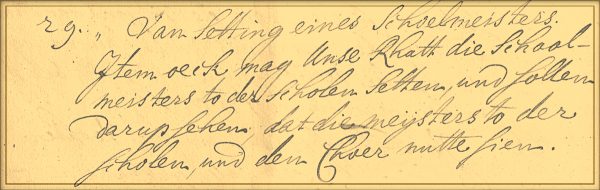 29. „ Van Setting eines Schoelmeisters.
Jtem oeck mag Unse Rhatt die Schael-
meisters to der Scholen Setten, und sollen
darup sehen dat die meijsters to der
scholen, und dem Choer nutte sien.